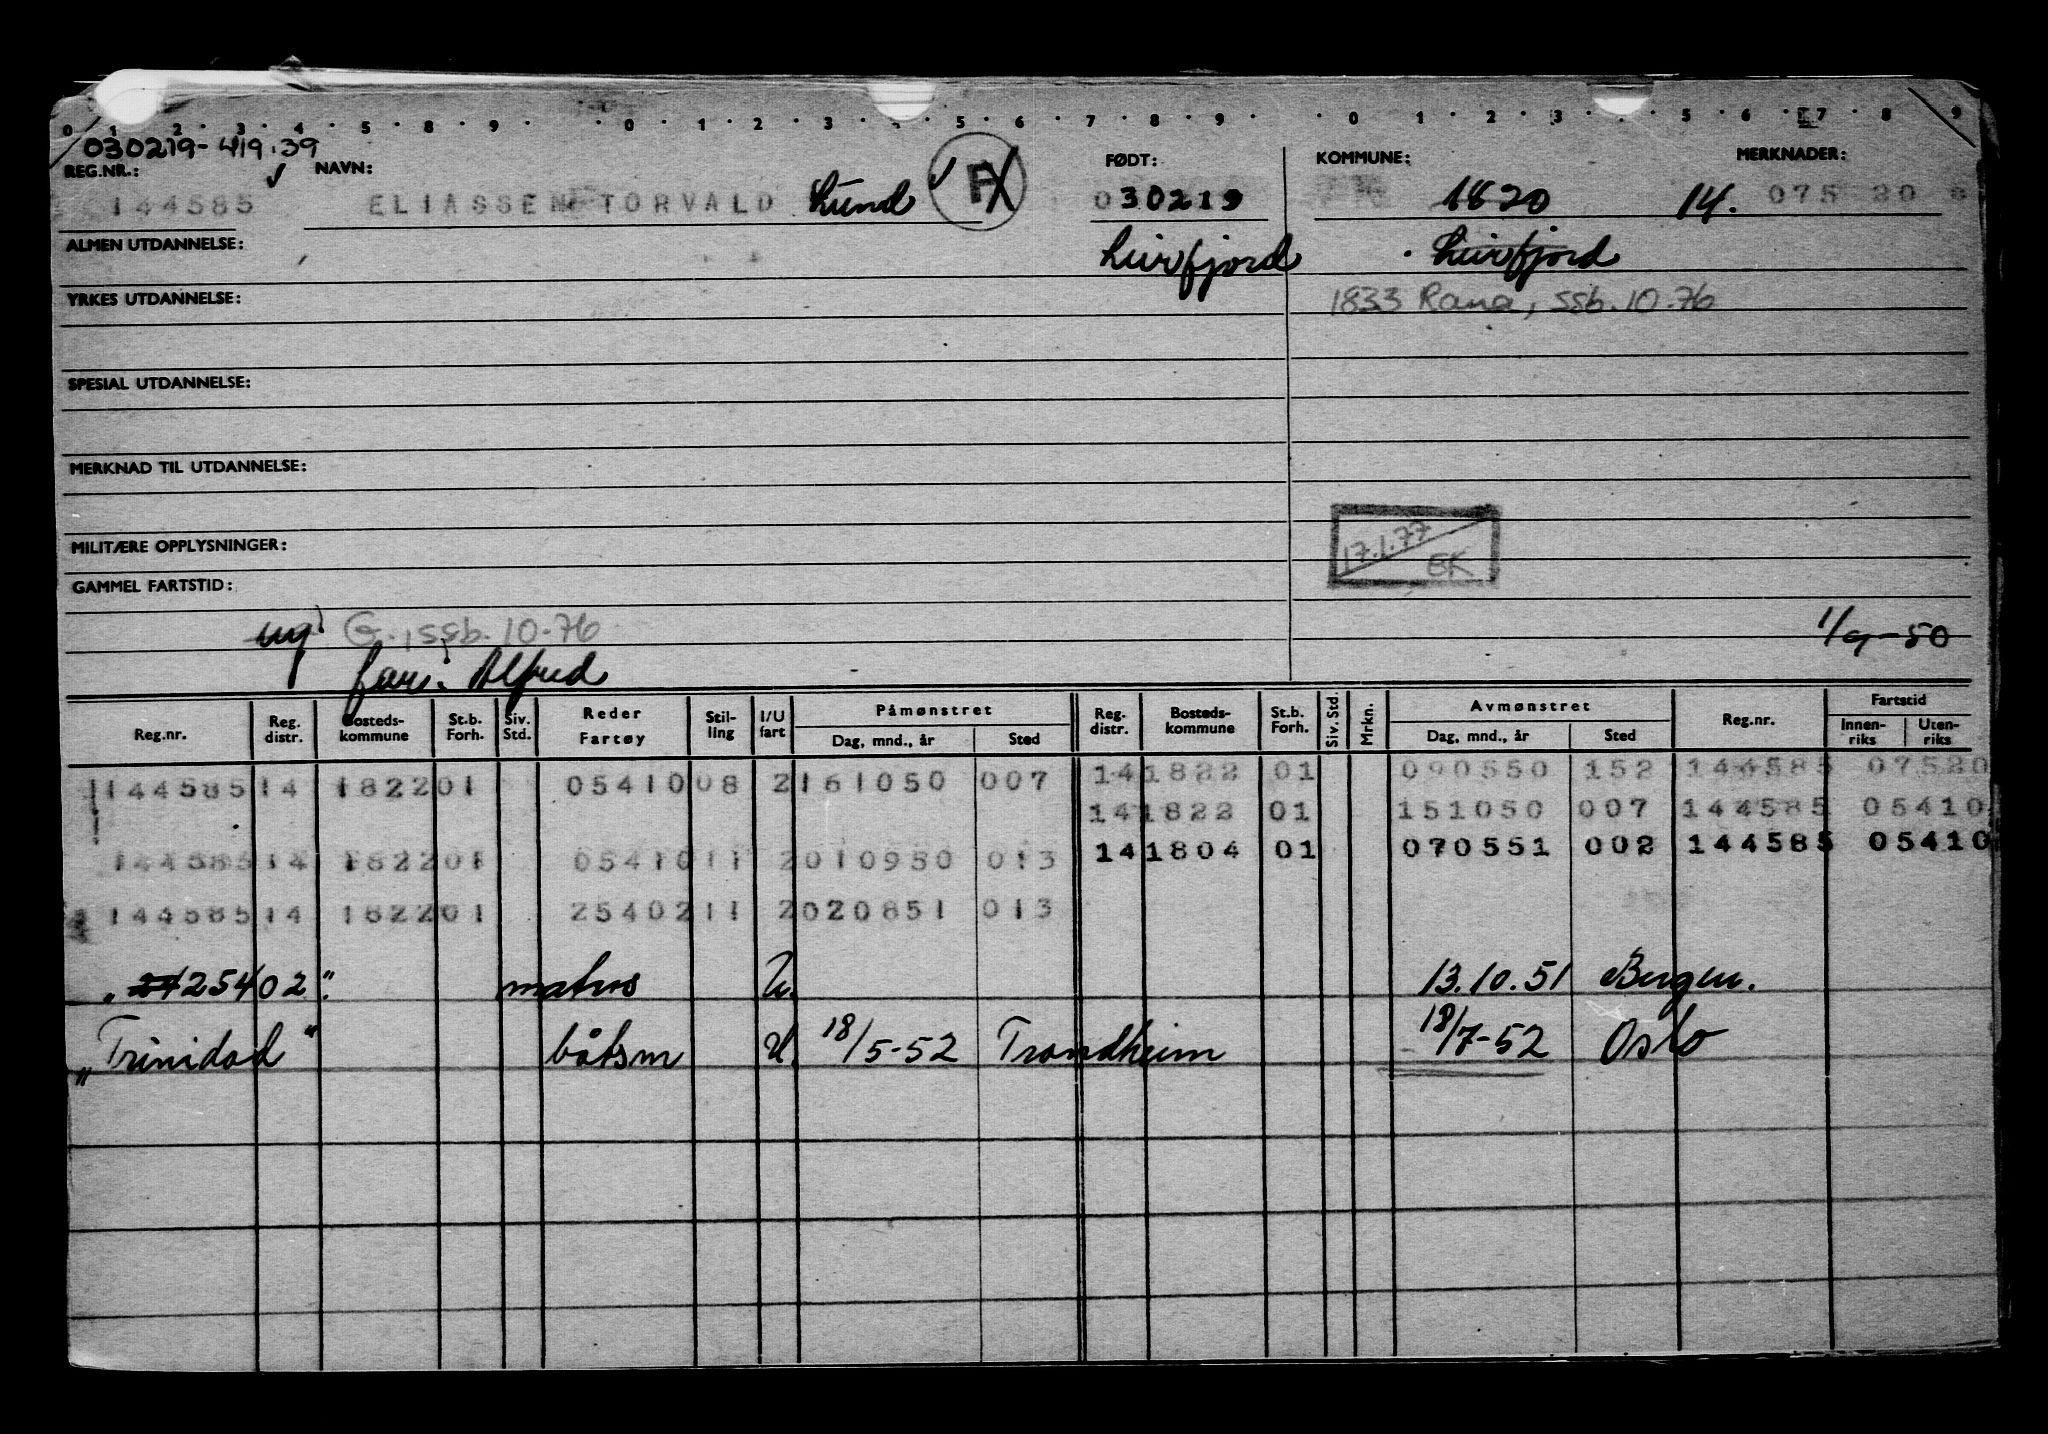 0 1 2 3 4 5 8 9 0 1 2 3 4 5 6 7 8 9 0 1 2 3 4 5 6 7 8 9
030219-419.39
REG.NR.: NAVN: FØDT: KOMMUNE: MERKNADER:
144585 ELIASSEN TORVALD Lund 030219 1820 14. 075 20
ALMEN UTDANNELSE: Leirfjord Leirfjord
YRKES UTDANNELSE: 1833 Rana, ssb. 10.76
SPESIAL UTDANNELSE:
MERKNAD TIL UTDANNELSE:
MILITÆRE OPPLYSNINGER: 17.1.77 EK
GAMMEL FARTSTID:
ug G., ssb. 10-76 1/9-50
far: Alfred
Reg.nr. Reg. distr. Bosteds- kommune St.b. Forh. Siv. Std. Reder Fartøy Stil- ling I/U fart Påmønstret Dag, mnd., år Sted Reg. distr. Bosteds- kommune St.b. Forh. Siv. Std. Mrkn. Avmønstret Dag, mnd., år Sted Reg.nr. Fartstid Innen- riks Uten- riks
144585 14 1822 01 05410 08 2 161050 007 14 1822 01 090550 152 144585 07520
14 1822 01 151050 007 144585 05410
144585 14 1822 01 05410 11 2 010950 013 14 1804 01 070551 002 144585 05410
144585 14 1822 01 25402 11 2 020851 013
"25402" matros U. 13.10.51 Bergen.
"Trinidad" båtsm U. 18/5-52 Trondheim 18/7-52 Oslo